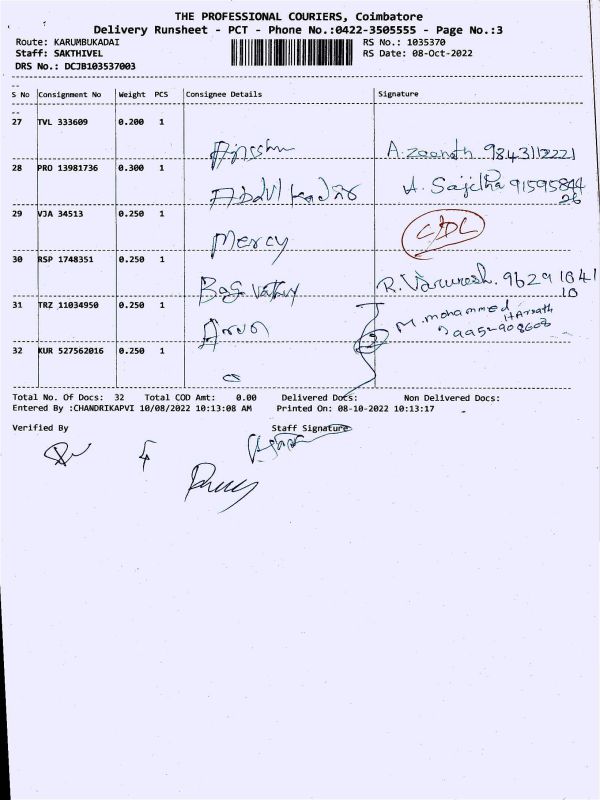 THE PROFESSIONAL COURIERS, Coimbatore
Delivery Runsheet - PCT - Phone No.:0422-3505555 - Page No.:3
Route: KARUMBUKADAI RS No.: 1035370
Staff: SAKTHIVEL RS Date: 08-Oct-2022
DRS No.: DCJB103537003
S No Consignment No Weight PCS Consignee Details Signature
27 TVL 333609 0.200 1
9843112221
28 PRO 13981736 0.300 1
A. Sajitha 91595844
26
29 VJA 34513 0.250 1
Mercy
30 RSP 1748351 0.250 1
R. 96291841
10
31 TRZ 11034950 0.250 1
M. mohammed
32 KUR 527562016 0.250 1
Total No. Of Docs: 32 Total COD Amt: 0.00 Delivered Docs: Non Delivered Docs:
Entered By :CHANDRIKAPVI 10/08/2022 10:13:08 AM Printed On: 08-10-2022 10:13:17
Verified By Staff Signature